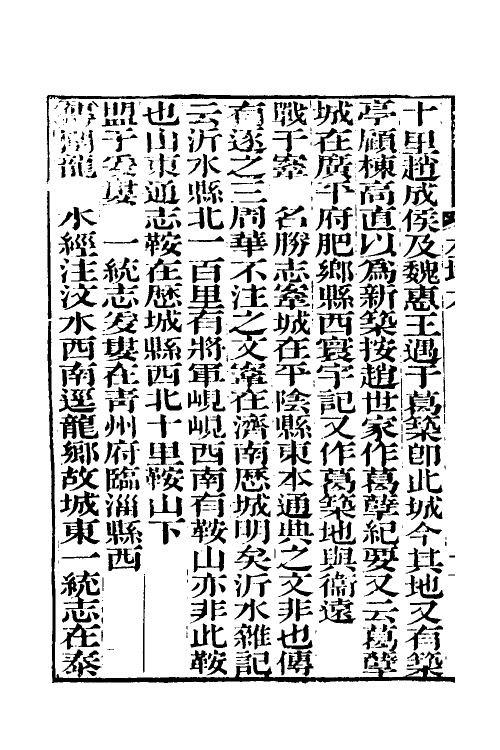 十里趙成侯及魏惠王遇于葛築卽此城今其地又有築
亭顧棟高直以爲新築按趙世家作葛孽紀要又云葛孽
城在廣平府肥鄉縣西寰宇記又作葛築地與衞遠
戰于鞌　名勝志鞌城在平陰縣東本通典之文非也傳
有逐之三周華不注之文鞌在濟南歴城明矣沂水雜記
云沂水縣北一百里有將軍峴峴西南有鞍山亦非此鞍
也山東通志鞍在歴城縣西北十里鞍山下
盟于爰婁　一統志爰婁在靑州府臨淄縣西
傳圍龍　水經注汶水西南逕龍鄉故城東一統志在泰